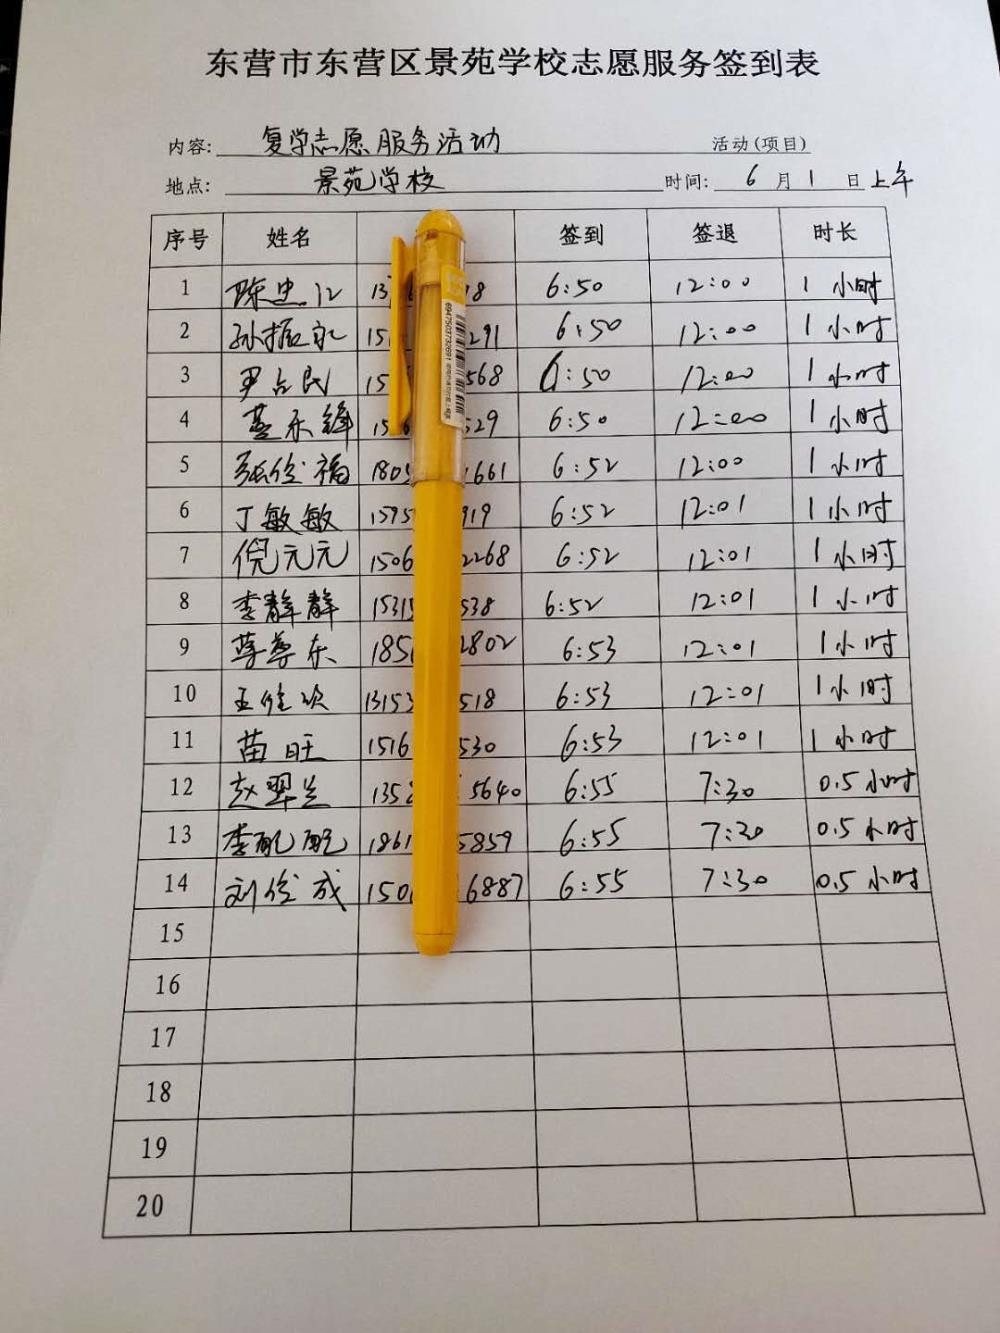 东营市东营区景苑学校志愿服务签到表
内容: 复学志愿服务活动 活动(项目)
地点: 景苑学校 时间: 6 月 1 日 上午
序号 姓名 签到 签退 时长
1 13 18 6:50 12:00 1 小时
2 孙振 15 291 6:50 12:00 1 小时
3 尹占民 15 568 6:50 12:00 1 小时
4 15 529 6:50 12:00 1 小时
5 张俊福 1805 1661 6:52 12:00 1 小时
6 丁敏敏 1595 919 6:52 12:01 1 小时
7 倪元元 1506 2268 6:52 12:01 1 小时
8 李静静 1531 538 6:52 12:01 1 小时
9 185 2802 6:53 12:01 1 小时
10 13153 518 6:53 12:01 1 小时
11 苗旺 1516 530 6:53 12:01 1 小时
12 135 5640 6:55 7:30 0.5 小时
13 1861 5859 6:55 7:30 0.5 小时
14 刘俊成 150 6887 6:55 7:30 0.5 小时
15
16
17
18
19
20